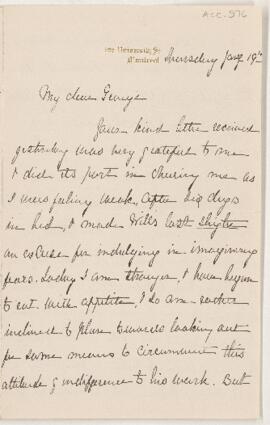 ACC. 576
University St
Montreal
Thursday Jany 19th
My dear George
Your kind letter received
yesterday was very grateful to me
& did its part in cheering me as
I was feeling weak, after six days
in bed, & made Will's last
an excuse for indulging in imagining
fears. Today I am stronger, & have begun
to eat with appetite, & so am rather
inclined to towards looking out
for some means to circumvent this
attitude of indifference to his work. But